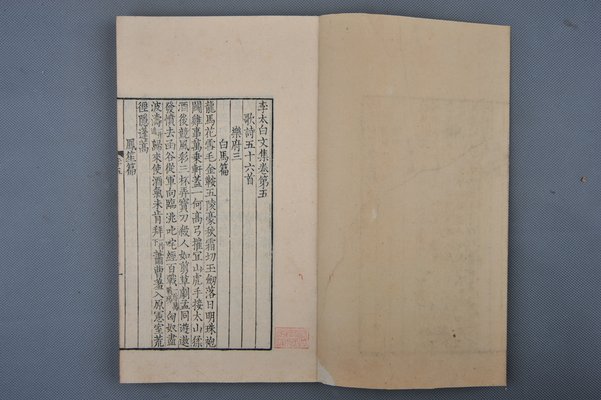 李太白文集卷第五
歌詩五十六首
樂府三
白馬篇
龍馬花雪毛金鞍五陵豪秋霜切玉劒落日明珠袍
鬭雞事萬乘軒蓋一何高弓摧宜山虎手接太山猱
酒後競風彩三杯弄寶刀殺人如剪草劇孟同遊遨
發憤去函谷從軍向臨洮叱咤經百戰匈奴盡
波濤歸來使酒氣未肯拜蕭曹羞入原憲室荒
徑隱蓬蒿
鳳笙篇